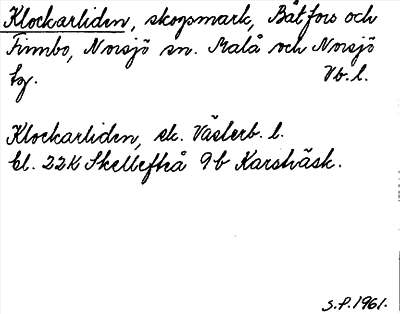 Klockarliden, skogsmark, Båtfors och
Finnbo, Norsjö sn. Malå och Norsjö
tg. Vb. l.
Klockarliden, ek. Västerb. l.
bl. 22K Skellefteå 9b Karsträsk.
S.P. 1961.